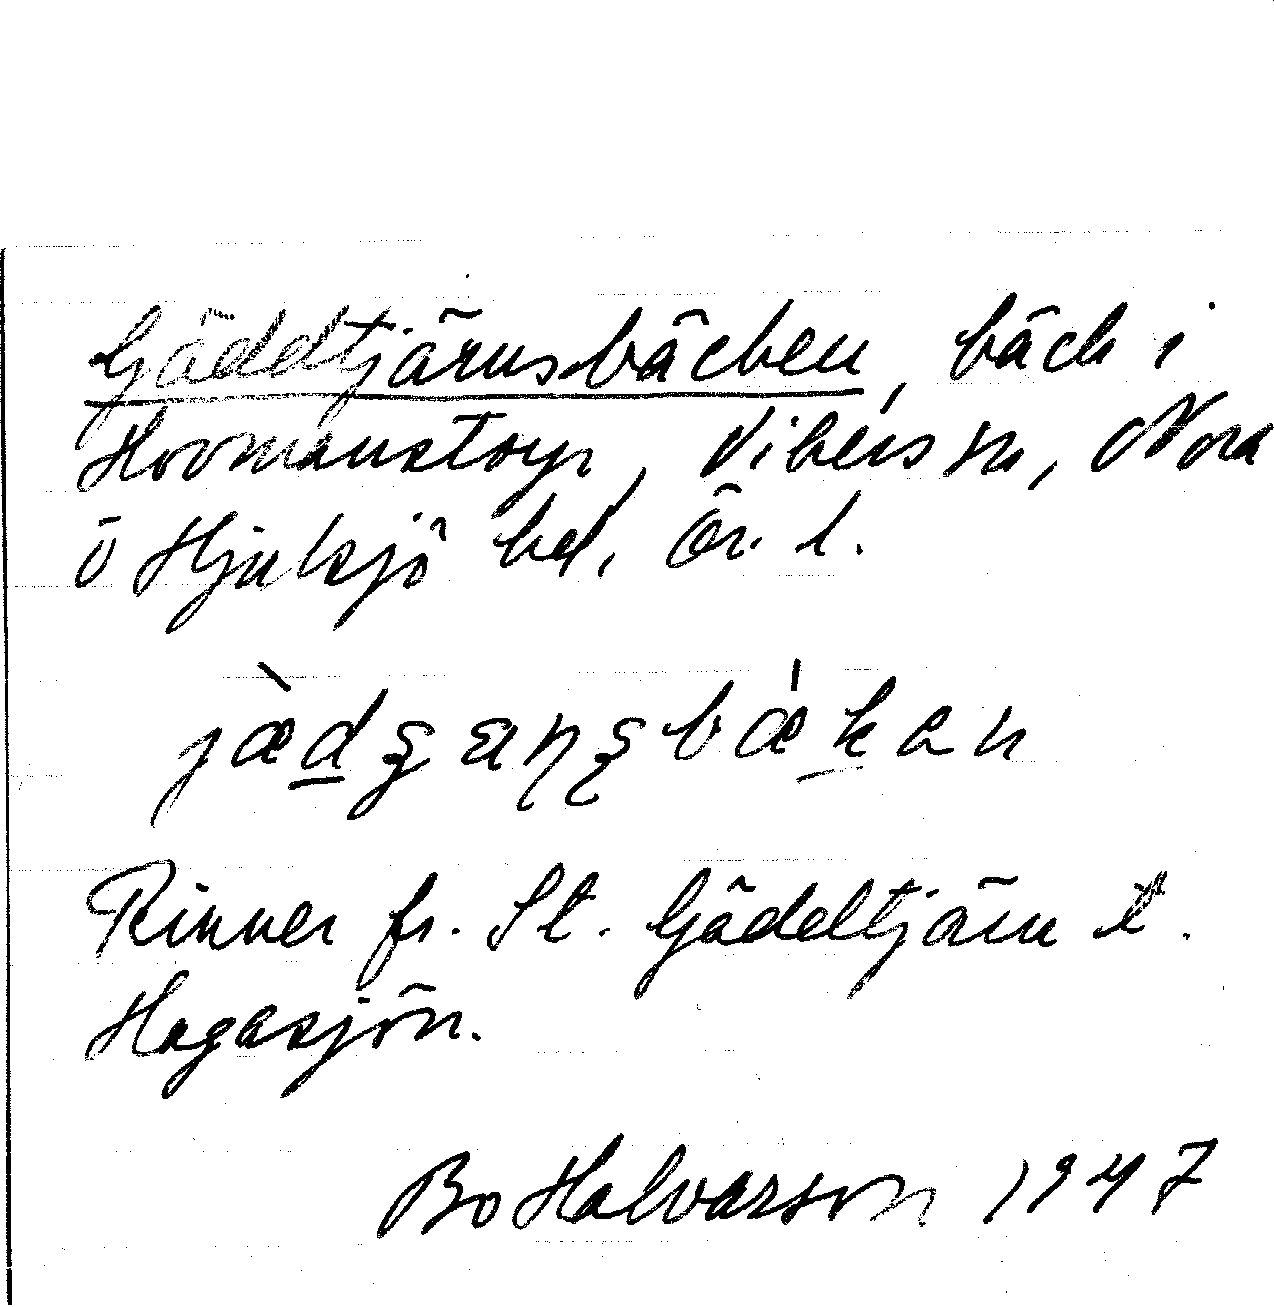 Gäddtjärnsbäcken, bäck i
Hovmanstorp, Vikers sn, Nora
o Hjulsjö bd, Ör. l.
Rinner fr. St. Gäddtjärn t.
Hagasjön.
Bo Halvarson 1947